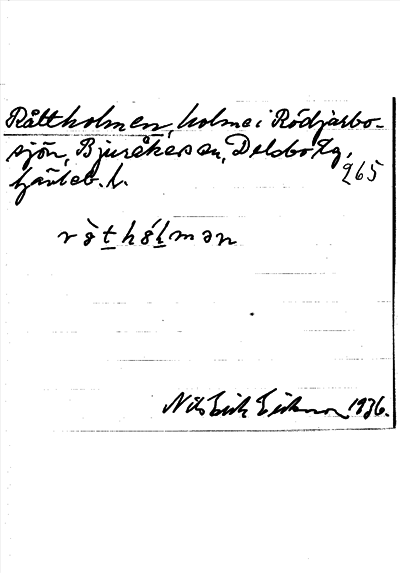 Råttholmen, holme i Rödjarbo-
sjön, Bjuråkers sn, Delsbo tg,
Gävleb. l.
265
r å̀ t h ǻ l m ə n
Nils Erik Eriksson 1936.